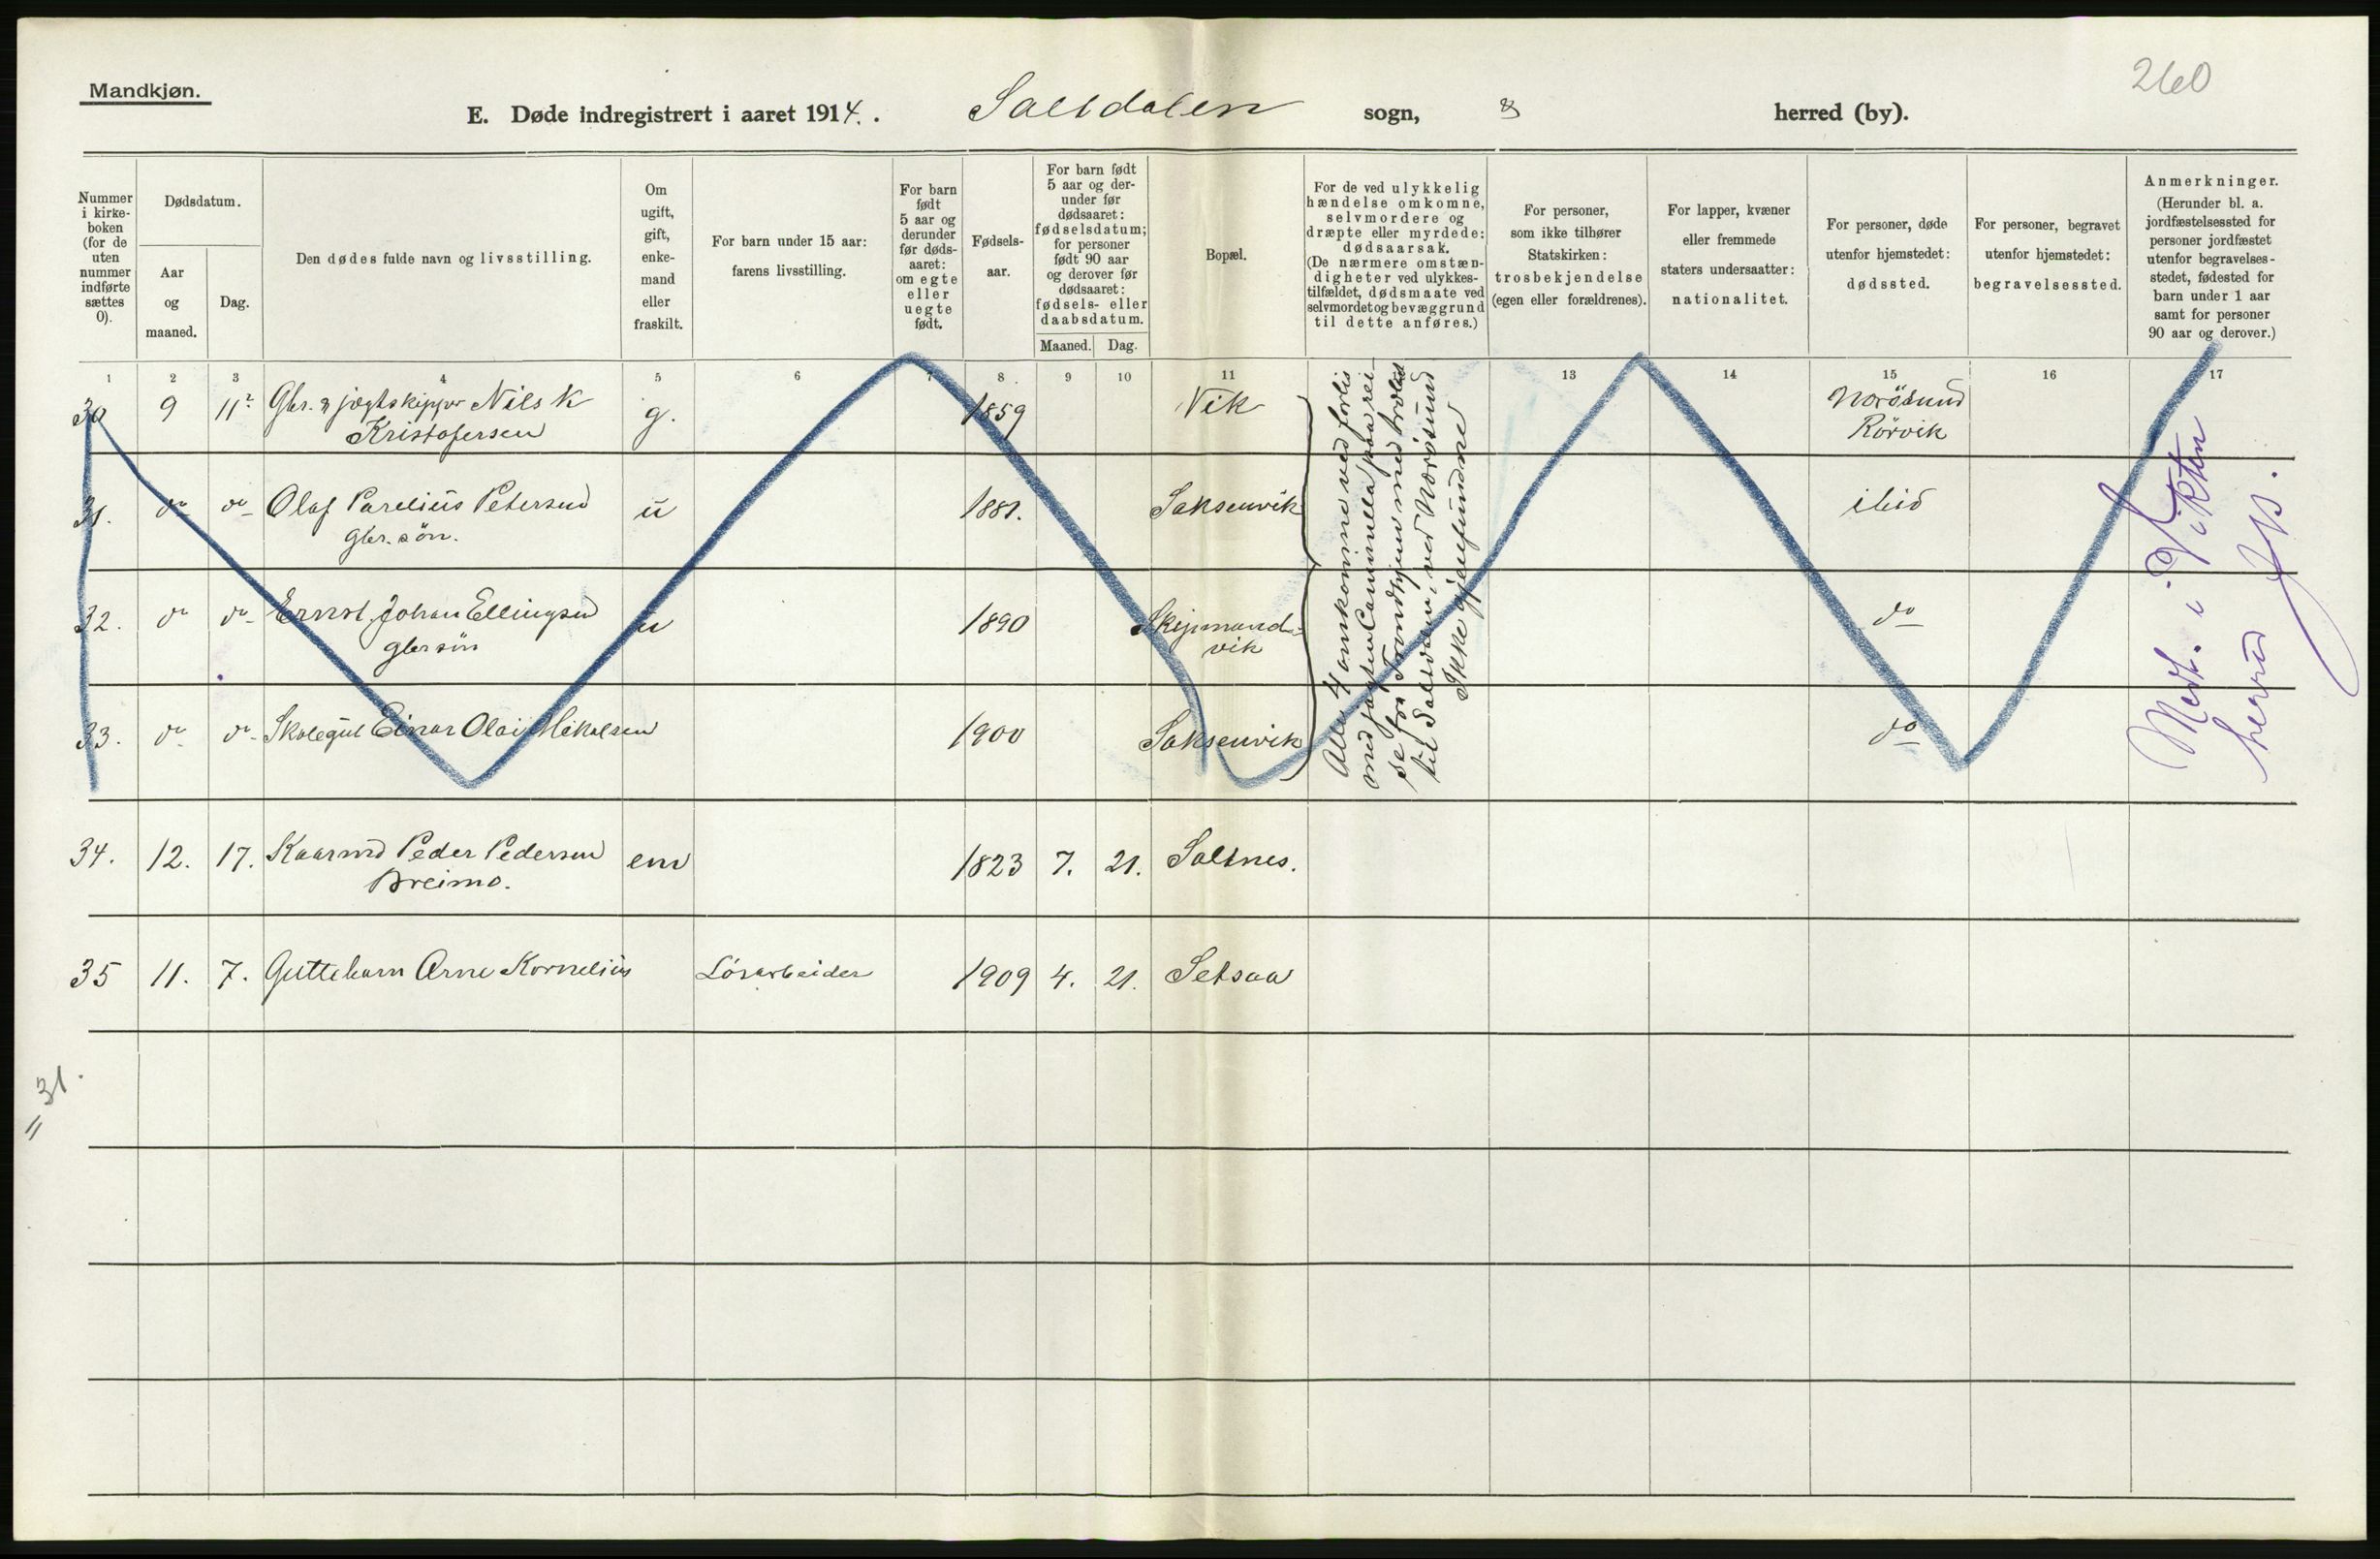 Mandkjøn.
260
E. Døde indregistrert i aaret 1914. Saltdalen sogn, herred (by).
Nummer i kirke-boken (for de uten nummer indførte sættes 0).
Dødsdatum.
Aar og maaned.
Dag.
Den dødes fulde navn og livsstilling.
Om ugift, gift, enke-mand eller fraskilt.
For barn under 15 aar: farens livsstilling.
For barn født 5 aar og derunder før døds-aaret: om egte eller uegte født.
Fødsels-aar.
For barn født 5 aar og der-under før dødsaaret: fødselsdatum; for personer født 90 aar og derover før dødsaaret: fødsels- eller daabsdatum.
Maaned. Dag.
Bopæl.
For de ved ulykkelig hændelse omkomne, selvmordere og dræpte eller myrdede: dødsaarsak. (De nærmere omstæn-digheter ved ulykkes-tilfældet, dødsmaate ved selvmordet og bevæggrund til dette anføres.)
For personer, som ikke tilhører Statskirken: trosbekjendelse (egen eller forældrenes).
For lapper, kvæner eller fremmede staters undersaatter: nationalitet.
For personer, døde utenfor hjemstedet: dødssted.
For personer, begravet utenfor hjemstedet: begravelsessted.
Anmerkninger. (Herunder bl. a. jordfæstelsessted for personer jordfæstet utenfor begravelses-stedet, fødested for barn under 1 aar samt for personer 90 aar og derover.)
1 2 3 4 5 6 7 8 9 10 11 13 14 15 16 17
30 9 11 Gbr. & jægtskipper Nils K g. 1859 Vik Nærøsund
Kristofersen Rörvik
31. do do Olaf Parelius Petersen u 1881. Saksenvik ibid
gbr. sön.
32. do do Ernst Johan Ellingsen u 1890 Skjpmand-
gbr sön vik do
33. do do Skolegut Einar Olai Mikalsen 1900 Saksenvik do
Alle 4 omkomne ved forlis
med jagten Camilla paa rei
se fra Trondhjem med
til Saltdalen, ved Nærösund
Ikke gjenfundne
Medt. i Vikten
herred
34. 12. 17. Kaarmd Peder Pedersen em 1823 7. 21. Saltnes.
Breimo.
35 11. 7. Guttebarn Arne Kornelius Lösarbeider 1909 4. 21. Setsaa
= 31.